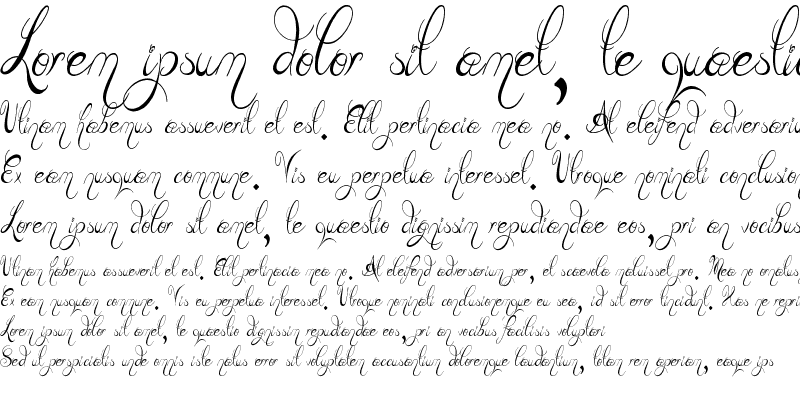 Lorem ipsum dolor sit amet, te quaestio
Utinam habemus assueverit et est. Elit pertinacia mea no. At eleifend adversariu
Ex eam nusquam commune. Vis eu perpetua interesset. Utroque nominati conclusion
Lorem ipsum dolor sit amet, te quaestio dignissim repudiandae eos, pri an vocibus
Utinam habemus assueverit et est. Elit pertinacia mea no. At eleifend adversarium per, et scaevola maluisset pro. Mea no ornatus
Ex eam nusquam commune. Vis eu perpetua interesset. Utroque nominati conclusionemque eu sea, id sit error tincidunt. Has ne repri
Lorem ipsum dolor sit amet, te quaestio dignissim repudiandae eos, pri an vocibus facilisis voluptari
Sed ut perspiciatis unde omnis iste natus error sit voluptatem accusantium doloremque laudantium, totam rem aperiam, eaque ips